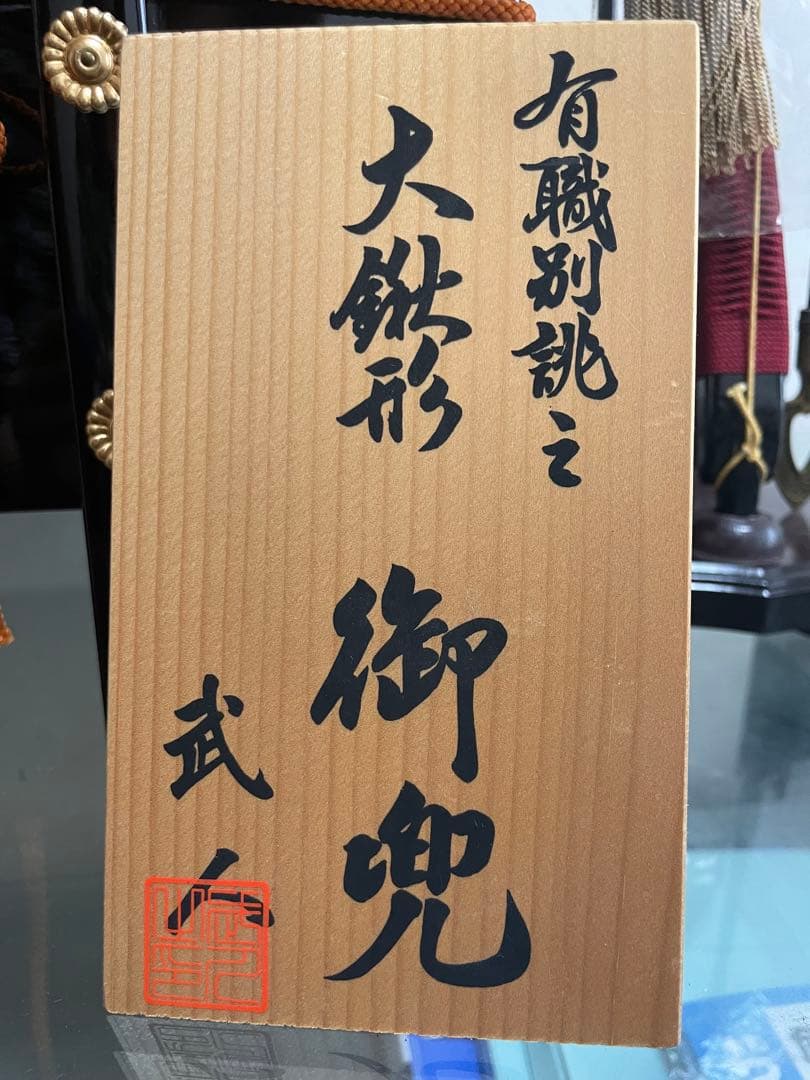 有職別誂之
大鍬形 御兜
武人